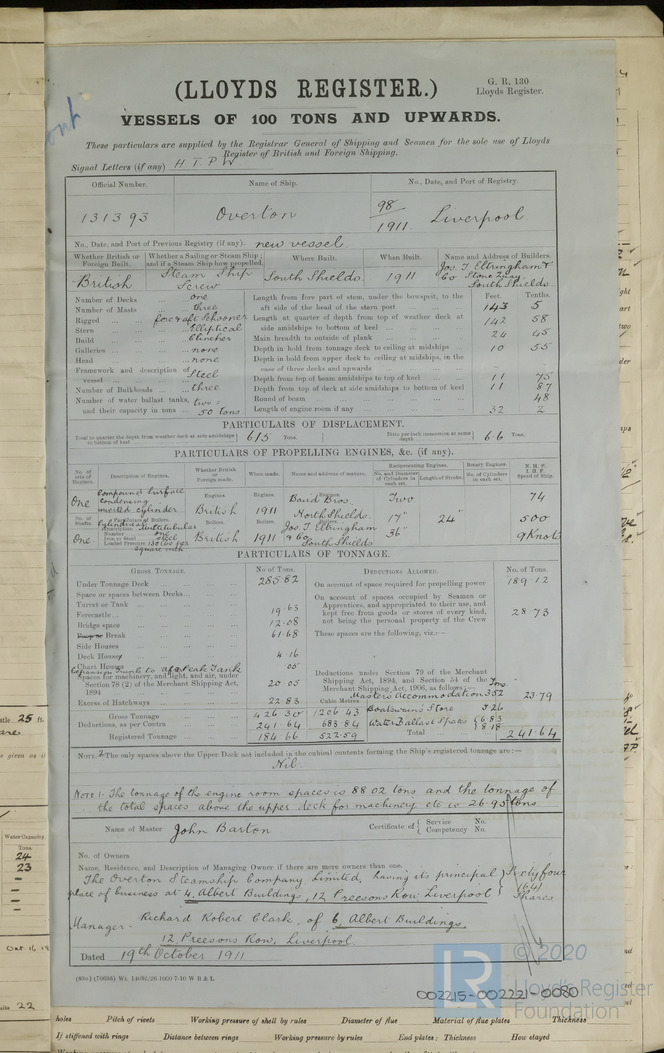 (LLOYDS REGISTER.)
G. R. 130
Lloyds Register.
VESSELS OF 100 TONS AND UPWARDS.
These particulars are supplied by the Registrar General of Shipping and Seamen for the sole use of Lloyds
Register of British and Foreign Shipping.
Signal Letters (if any) H T P W
Official Number. Name of Ship. No., Date, and Port of Registry.
131393 Overton 98/1911 Liverpool
No., Date, and Port of Previous Registry (if any). new vessel.
Whether British or Foreign Built. Whether a Sailing or Steam Ship; and if a Steam Ship how propelled. Where Built. When Built. Name and Address of Builders.
British Steam Ship Screw South Shields 1911 Jos. T. Eltringham & Co Stone Quay South Shields
Number of Decks one
Number of Masts three
Rigged fore & aft Schooner
Stern Elliptical
Build Clincher
Galleries none
Head none
Framework and description of vessel Steel
Number of Bulkheads three
Number of water ballast tanks, and their capacity in tons two = 50 tons
Feet. Tenths.
Length from fore part of stem, under the bowsprit, to the aft side of the head of the stern post 143 5
Length at quarter of depth from top of weather deck at side amidships to bottom of keel 142 58
Main breadth to outside of plank 24 45
Depth in hold from tonnage deck to ceiling at midships 10 55
Depth in hold from upper deck to ceiling at midships, in the case of three decks and upwards
Depth from top of beam amidships to top of keel 11 75
Depth from top of deck at side amidships to bottom of keel 11 87
Round of beam 48
Length of engine room if any 32 2
PARTICULARS OF DISPLACEMENT.
Total to quarter the depth from weather deck at side amidships to bottom of keel 615 Tons. Ditto per inch immersion at same depth 6.6 Tons.
PARTICULARS OF PROPELLING ENGINES, &c. (if any).
No. of sets of Engines. Description of Engines. Whether British or Foreign made. When made. Name and address of makers. Reciprocating Engines. No. and Diameter of Cylinders in each set. Length of Stroke. Rotary Engines. No. of Cylinders in each set. N.H.P. I.H.P. Speed of Ship.
One Compound Surface condensing inverted cylinder Engines. British Engines. 1911 Engines. Baird Bros North Shields Two 17" 36" 24" 74 500 9 Knots
No. of Shafts. Particulars of Boilers. Boilers. Boilers. Boilers.
One Description Cylindrical Multitubular Number one Iron or Steel Steel Loaded Pressure 130 lbs per square inch British 1911 Jos T. Eltringham & Co South Shields
PARTICULARS OF TONNAGE.
GROSS TONNAGE. No. of Tons. DEDUCTIONS ALLOWED. No. of Tons.
Under Tonnage Deck 285.82
Space or spaces between Decks
Turret or Trunk
Forecastle 19.63
Bridge space 12.08
Break 61.68
Side Houses
Deck Houses 4.16
Chart House
.05
Spaces for machinery, and light, and air, under Section 78 (2) of the Merchant Shipping Act, 1894 20.05
Excess of Hatchways 22.83
Cubic Metres.
Gross Tonnage 426.30 1206.43
Deductions, as per Contra 241.64 683.84
Registered Tonnage 184.66 522.59
On account of space required for propelling power 189.12
On account of spaces occupied by Seamen or Apprentices, and appropriated to their use, and kept free from goods or stores of every kind, not being the personal property of the Crew 28.73
These spaces are the following, viz.:—
Deductions under Section 79 of the Merchant Shipping Act, 1894, and Section 54 of the Merchant Shipping Act, 1906, as follows:— Tons
Master's Accommodation 3.52
Boatswain's Store 3.26
Water Ballast Spaces 6.83 8.18
23.79
Total 241.64
NOTE 2. The only spaces above the Upper Deck not included in the cubical contents forming the Ship's registered tonnage are:—
Nil.
Note 1. The tonnage of the engine room spaces is 88.02 tons and the tonnage of
the total spaces above the upper deck for machinery etc is 26.95 tons
Name of Master John Barton Certificate of Service No. Competency No.
No. of Owners
Name, Residence, and Description of Managing Owner if there are more owners than one.
The Overton Steamship Company Limited, having its principal
place of business at 4, Albert Building, 12 Preesons Row Liverpool
Sixty four (64) Shares
Manager. Richard Robert Clark, of 6 Albert Buildings,
12 Preesons Row, Liverpool.
Dated 19th October 1911
© 2020
LR
Lloyd's Register
Foundation
002215-002221-0080
holes Pitch of rivets Working pressure of shell by rules Diameter of flue Material of flue plates Thickness
If stiffened with rings Distance between rings Working pressure by rules End plates: Thickness How stayed
25 ft.
Water Capacity
Tons
24
23
22